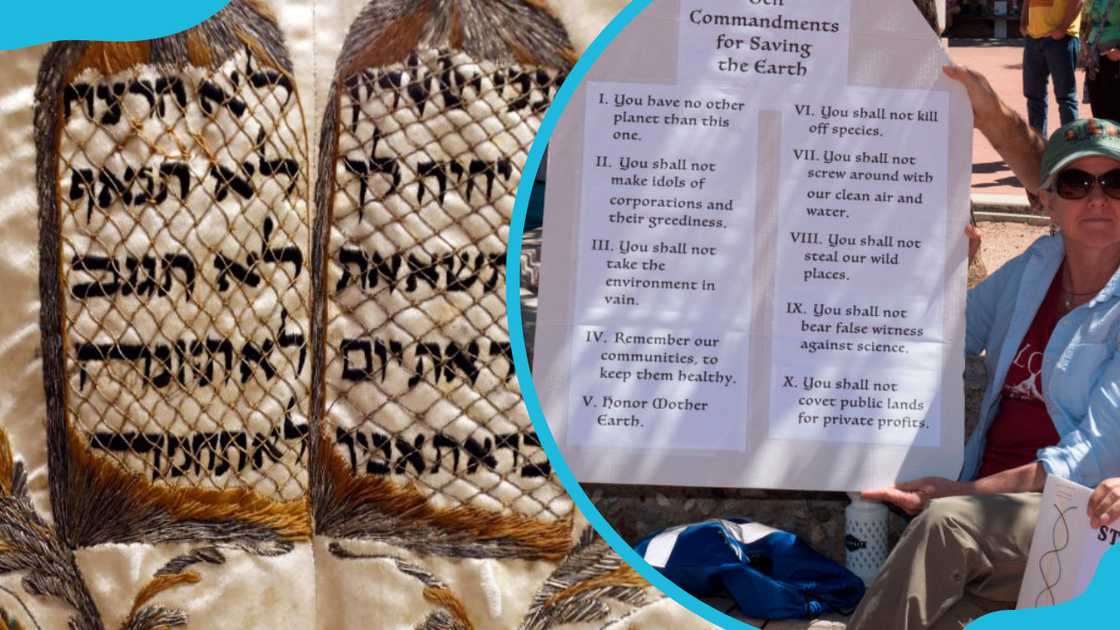 יהיה לך
תשא את
את יום
לא תרצח
לא תנאף
לא תגנב
לא
לא
Commandments
for Saving
the Earth
I. You have no other
planet than this
one.
II. You shall not
make idols of
corporations and
their greediness.
III. You shall not
take the
environment in
vain.
IV. Remember our
communities, to
keep them healthy.
V. Honor Mother
Earth.
VI. You shall not kill
off species.
VII. You shall not
screw around with
our clean air and
water.
VIII. You shall not
steal our wild
places.
IX. You shall not
bear false witness
against science.
X. You shall not
covet public lands
for private profits.
ST